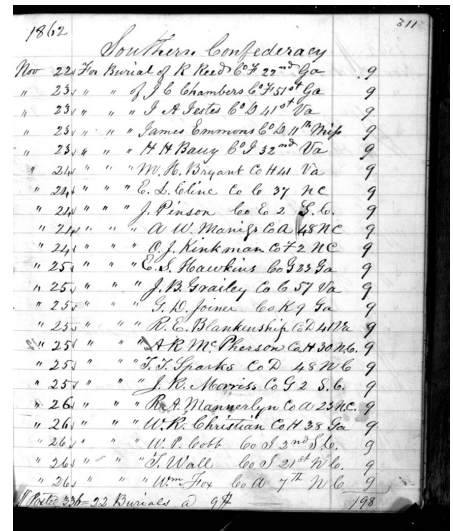 1862
311
Southern Confederacy
Nov 22 For Burial of R Reed Co F 22nd Ga 9
" 23 " " of J C Chambers Co F 51st Ga 9
" 23 " " " J A Testes Co D 41st Va 9
" 23 " " " James Emmons Co D 11th Miss 9
" 23 " " " H H Baug Co I 32nd Va 9
" 24 " " " W. H. Bryant Co H 41 Va 9
" 24 " " " E. D. Cline Co C 37 NC 9
" 24 " " " J. Pinson Co E 2 S. C. 9
" 24 " " " A W. Co A 48 NC 9
" 24 " " " O. J. Kinkman Co F 2 NC 9
" 25 " " " E. S. Hawkins Co G 23 Ga 9
" 25 " " " J. B. Grailey Co C 57 Va 9
" 25 " " " G. D. Joiner Co K 9 Ga 9
" 25 " " " R. E. Blankinship Co D 41 Va 9
" 25 " " " A R McPherson Co H 30 N.C. 9
" 25 " " " T. T. Sparks Co D 48 N C 9
" 25 " " " J. K. Morriss Co G 2 S. C. 9
" 26 " " " R. A. Mannerlyn Co A 23 N.C. 9
" 26 " " " W. R. Christian Co H 38 Ga 9
" 26 " " " W. P. Cobb Co I 2nd S. C. 9
" 26 " " " T. Wall Co I 21st N C. 9
" 26 " " " Wm Fox Co A 7th N C 9
Posted 336 = 22 Burials a 9$ 198